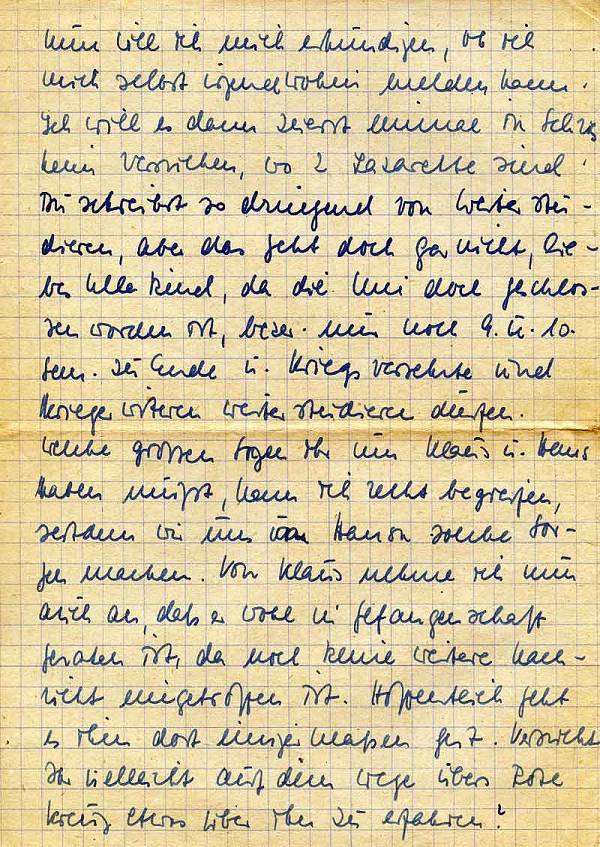 Nun will ich mich erkundigen, ob ich
mich selbst irgendwohin melden kann.
Ich will es dann zuerst einmal in
versuchen, wo 2 Lazarette sind.
Du schreibst so dringend von weiter stu-
dieren, aber das geht doch gar nicht, lie-
bes Ulla kind, da die Uni doch geschlos-
sen worden ist, bezw. nur noch 9. u. 10.
Sem. zu Ende u. Kriegsversehrte und
Kriegerwitwen weiter studieren dürfen.
Welche großen Sorgen Ihr um Klaus u. Hans
haben müßt, kann ich recht begreifen,
seitdem wir uns um solche Sor-
gen machen. Von Klaus nehme ich nun
auch an, daß er wohl in Gefangenschaft
geraten ist, da noch keine weitere Nach-
richt eingetroffen ist. Hoffentlich geht
es ihm dort einigermaßen gut. Versucht
Ihr vielleicht auf dem Wege übers Rote
Kreuz etwas über ihn zu erfahren?